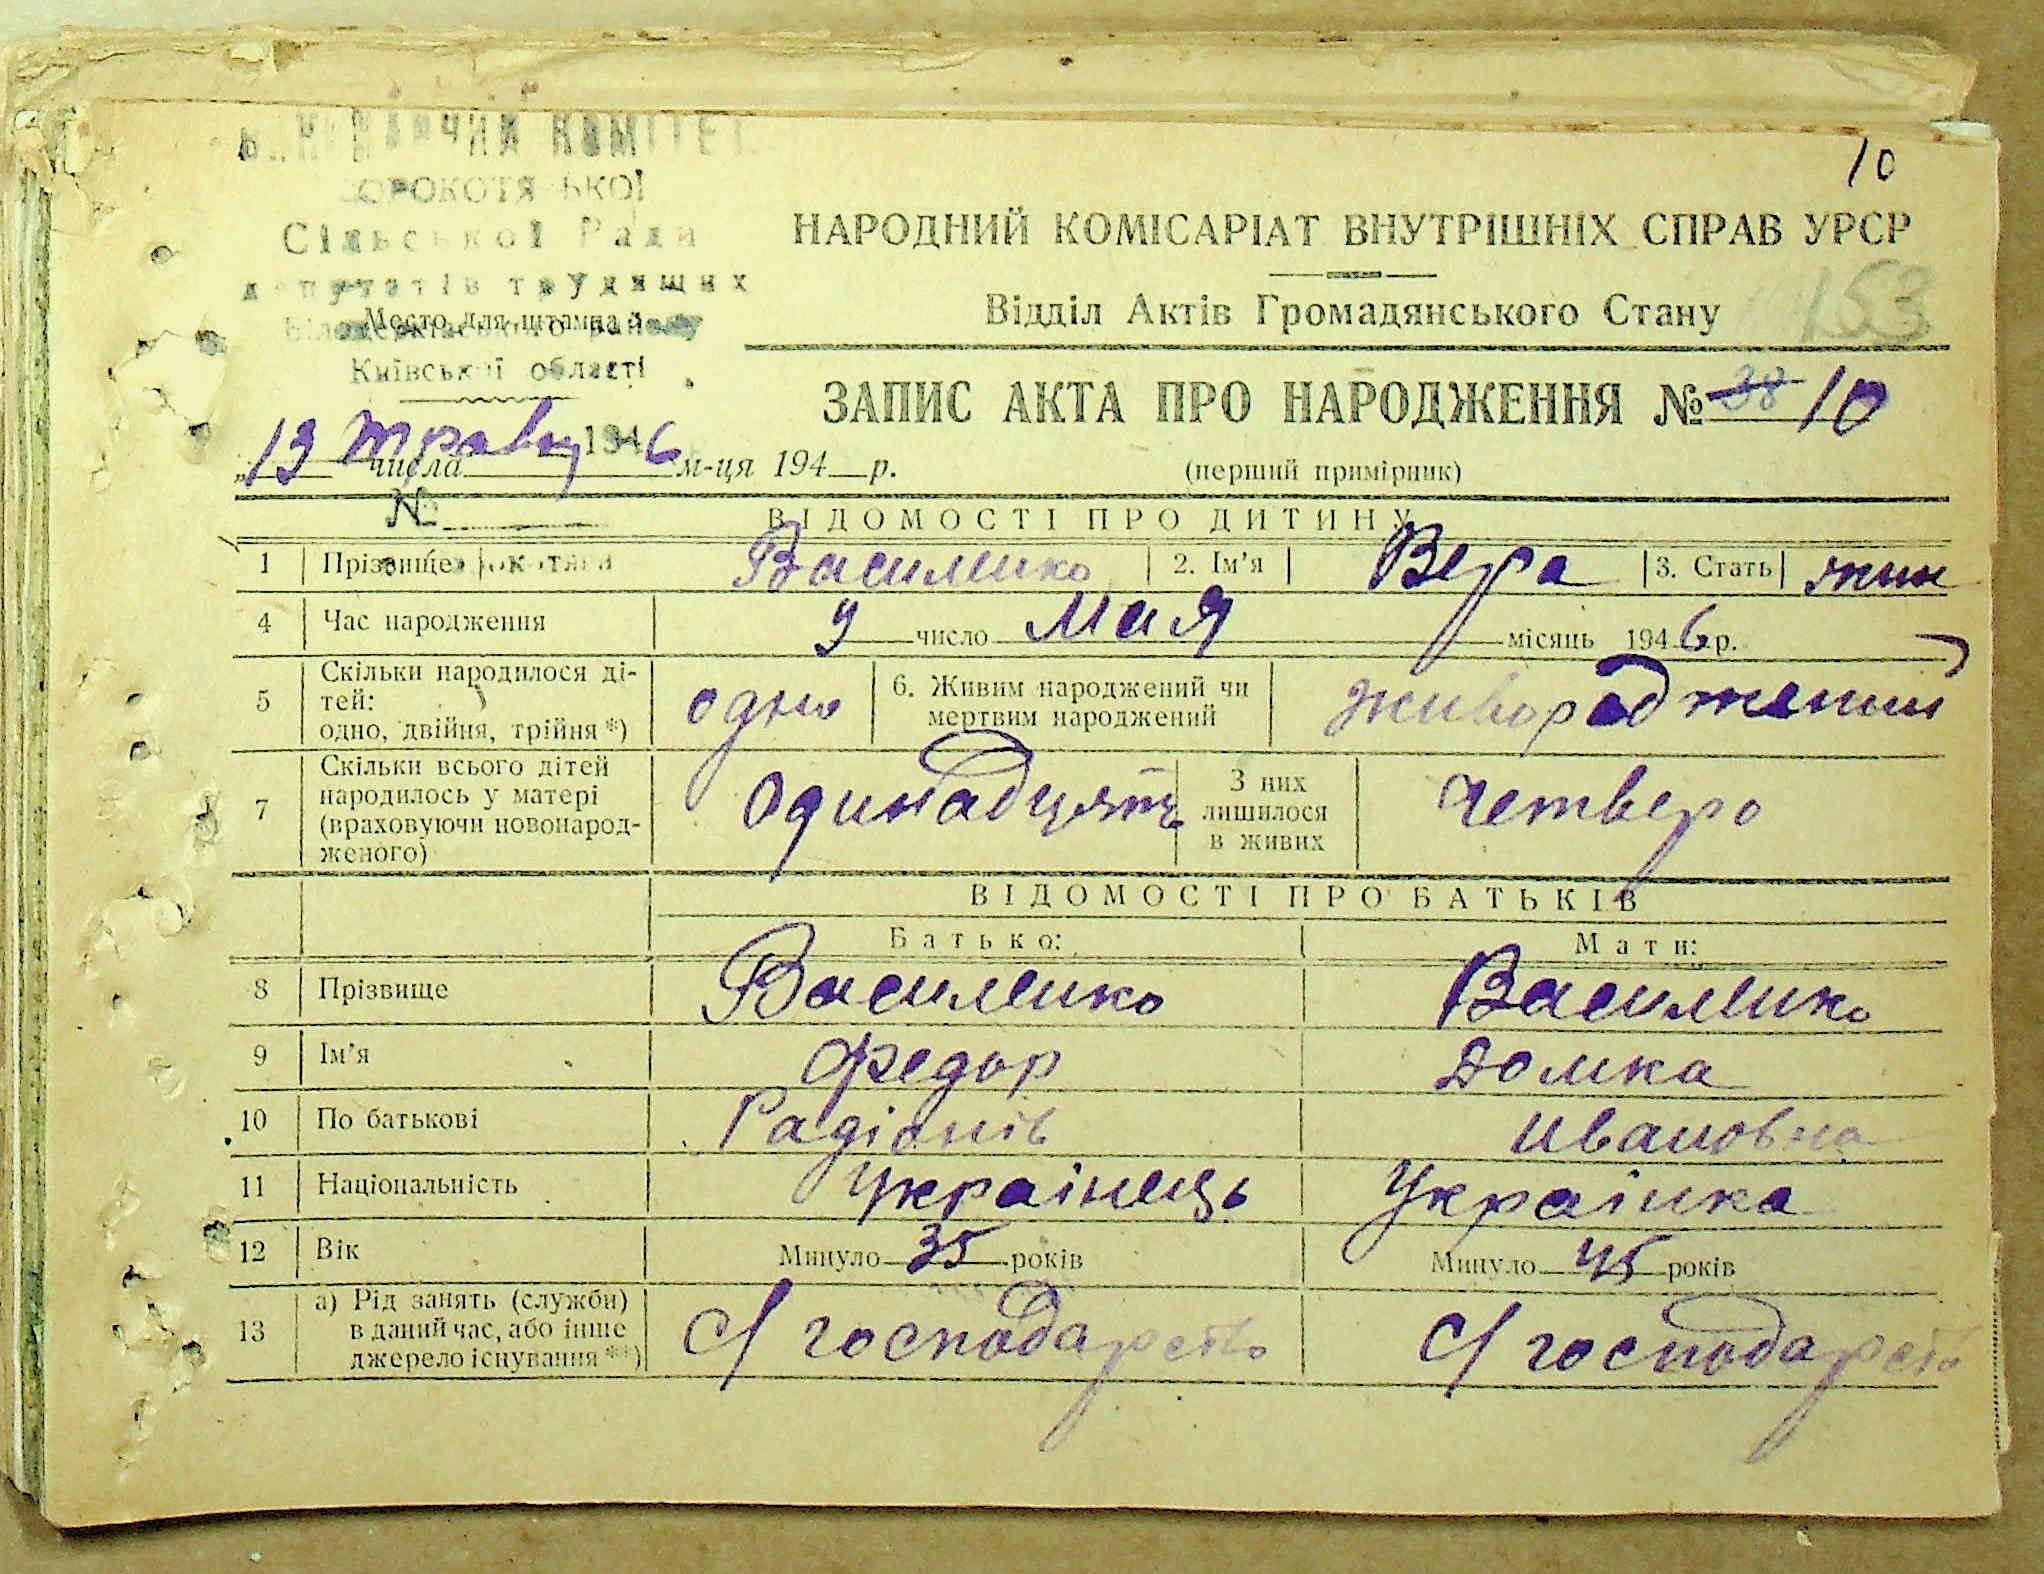 10
КОМІТЕТ
Сільської Ради
депутатів трудящих
Место для штампа
Київської області
НАРОДНИЙ КОМІСАРІАТ ВНУТРІШНІХ СПРАВ УРСР
Відділ Актів Громадянського Стану
153
ЗАПИС АКТА ПРО НАРОДЖЕННЯ № 38 10
13 травня 1946
„ числа м-ця 194 р.
(перший примірник)
№
ВІДОМОСТІ ПРО ДИТИНУ
1 Прізвище Василико 2. Ім'я Вера 3. Стать жин
4 Час народження 9 число Мая місяць 1946 р.
5 Скільки народилося ді-
тей:
одно, двійня, трійня *) одно 6. Живим народжений чи
мертвим народжений живороджений
7 Скільки всього дітей
народилось у матері
(враховуючи новонарод-
женого) одинадцять З них
лишилося
в живих четверо
ВІДОМОСТІ ПРО БАТЬКІВ
Батько: Мати:
8 Прізвище Василико Василико
9 Ім'я Федор Домка
10 По батькові Радіонів Ивановна
11 Національність Українець Українка
12 Вік Минуло 35 років Минуло 45 років
13 а) Рід занять (служби)
в даний час, або інше
джерело існування **) с/господарство с/господарство